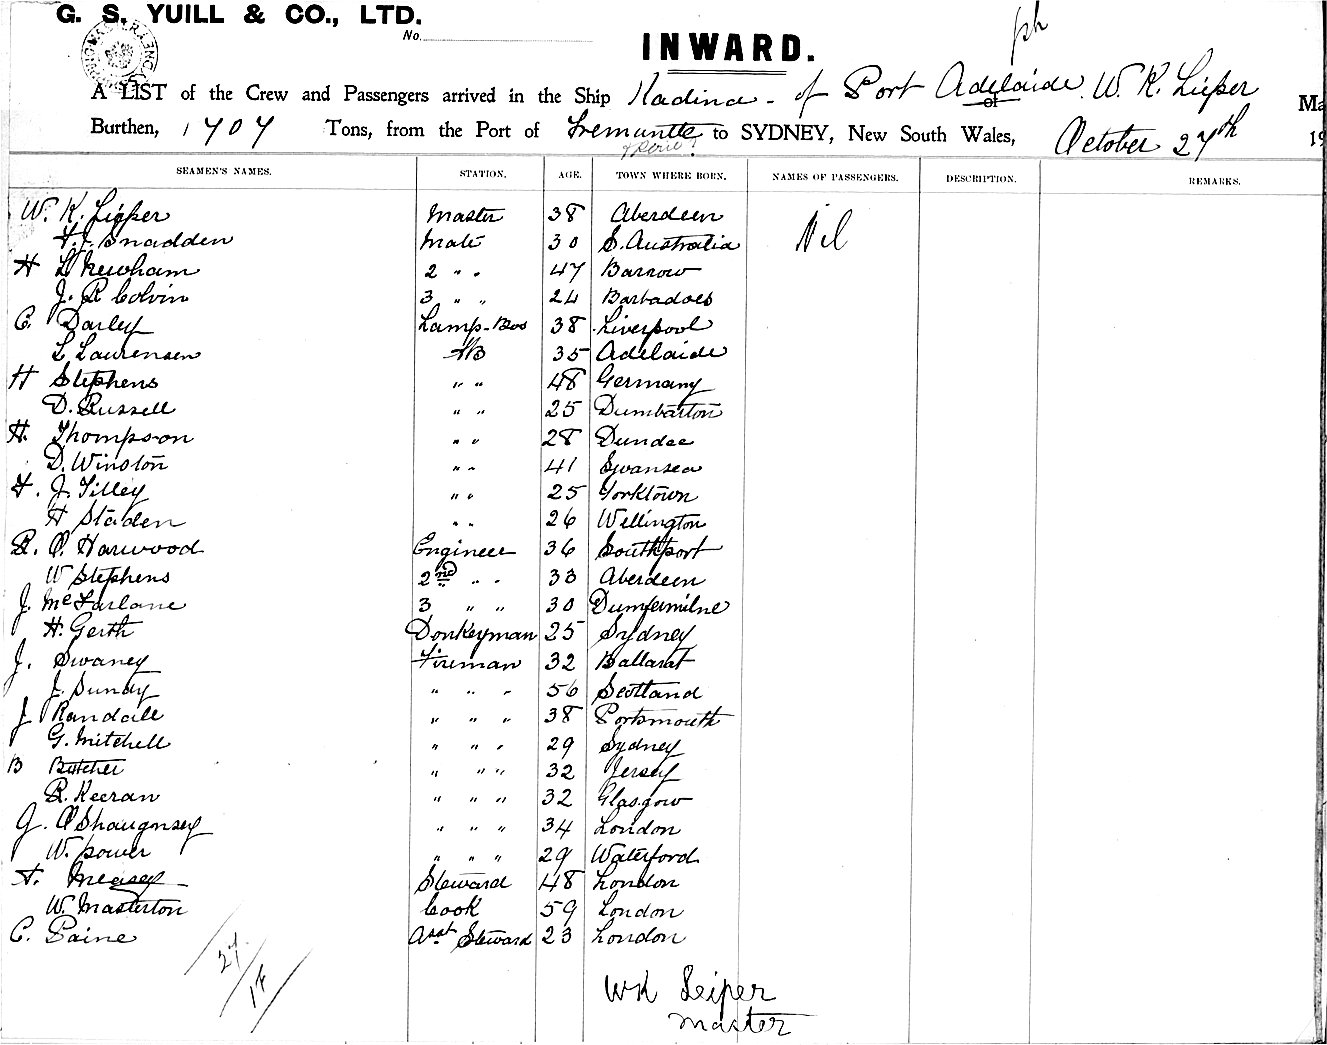 G. S. YUILL & CO., LTD.
No.
INWARD.
A LIST of the Crew and Passengers arrived in the Ship Kadina - of Port Adelaide of W. K. Lieper Ma
Burthen, 1707 Tons, from the Port of Fremantle to SYDNEY, New South Wales, October 27th 19
SEAMEN'S NAMES. STATION. AGE. TOWN WHERE BORN. NAMES OF PASSENGERS. DESCRIPTION. REMARKS.
W. K. Lieper Master 38 Aberdeen Nil
Snadden Mate 30 S. Australia
H L Newham 2 " " 47 Barrow
J. R Colvin 3 " " 24 Barbadoes
C. Darley Lamp-Bos 38 Liverpool
L Laurensen AB 35 Adelaide
H Stephens " " 48 Germany
D. Russell " " 25 Dumbarton
H. Thompson " " 28 Dundee
D. Winston " " 41 Swansea
F. J. Tilley " " 25 Yorktown
H Staden " " 26 Wellington
R. O. Harwood Engineer 36 Southport
W Stephens 2nd " " 33 Aberdeen
J. McFarlane 3 " " 30 Dumfermilne
H. Gerth Donkeyman 25 Sydney
J. Swaney Fireman 32 Ballarat
J. Sundy " " " 56 Scotland
J Randall " " " 38 Portsmouth
G. Mitchell " " " 29 Sydney
B Butcher " " " 32 Jersey
R. Keeran " " " 32 Glasgow
G. O Shaugnsey " " " 34 London
W. power " " " 29 Waterford
Measey Steward 48 London
W. Masterton Cook 59 London
C. Paine Asst Steward 23 London
27
WK Leiper
Master